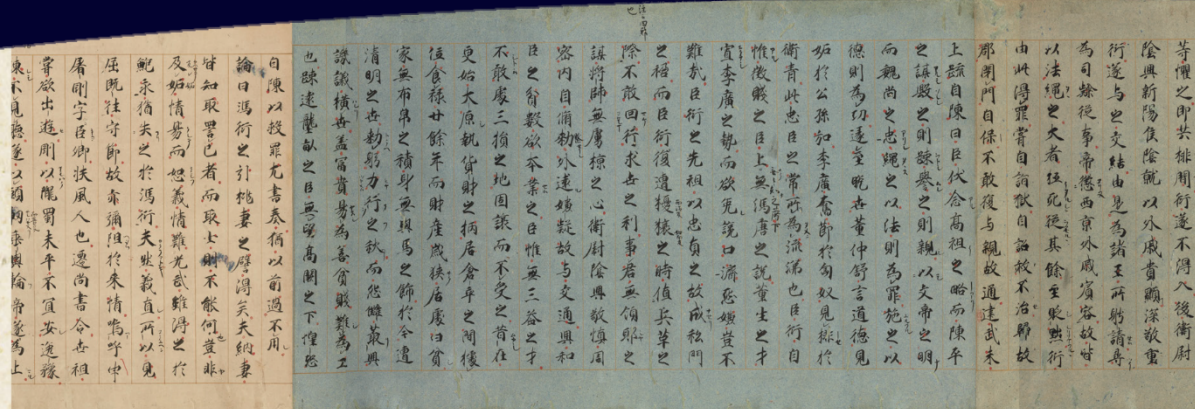 等懼之即共排間衍遂不得入後衛尉
陰興新陽侯陰就以外戚貴顯深敬重
衍遂与之交結由是為諸王所聘請尋
為司隸從事帝懲西京外戚賓客故皆
以法繩之大者伍死徙其餘至貶黜衍
由此得罪甞自詣獄自詔赦不治歸故
郡閇門自保不敢復与親故通建武末
上疏自陳曰臣伏念高祖之略而陳平
之謀毀之則踈譽之則親以文帝之明
而魏尚之忠繩之以法則為罪施之以
德則為功逮至晚世董仲舒言道德見
妬於公孫弘李廣奮節於匈奴見排於
衛青此忠臣之常所為流涕也臣衍自
惟微賤之臣上無馮唐之說董生之才
寡李廣之勢而欲免讒口濟怨嫌豈不
難哉臣衍之先祖以忠貞之故成私門
之禍而臣衍復遭擾攘之時值兵革之
際不敢回行求世之利事君無傾邪之
謀將帥無虜掠之心衛尉陰興敬慎周
密內自脩勑外遠嫌疑故与交通興知
臣之貧數欲本業之臣惟無三益之才
不敢處三損之地固讓而不受之昔在
更始大原執貨財之柄居倉卒之間據
位食祿廿餘年而財産歲狹居處日貧
家無布帛之積身無輿馬之飾於今遭
清明之世勑躬力行之秋而怨讎叢興
譏議橫世盖富貴易為善貧賤難為工
也踈遠壟畝之臣無望高闕之下惶恐
自陳以投罪尤書奏猶以前過不用
論曰馮衍之引挑妻之譬得矣夫納妻
皆知取詈己者而取士則不能何豈非
反妬情易而恕義情難光武雖得之於
鮑永猶失之於馮衍夫然義直所以見
屈既往守節故亦彌阻於來情嗚呼申
屠剛字臣卿扶風人也遷尚書令世祖
甞欲出遊剛以隴蜀未平不宜安逸豫
諫不見聽遂以頭軔乗輿輪帝遂為上